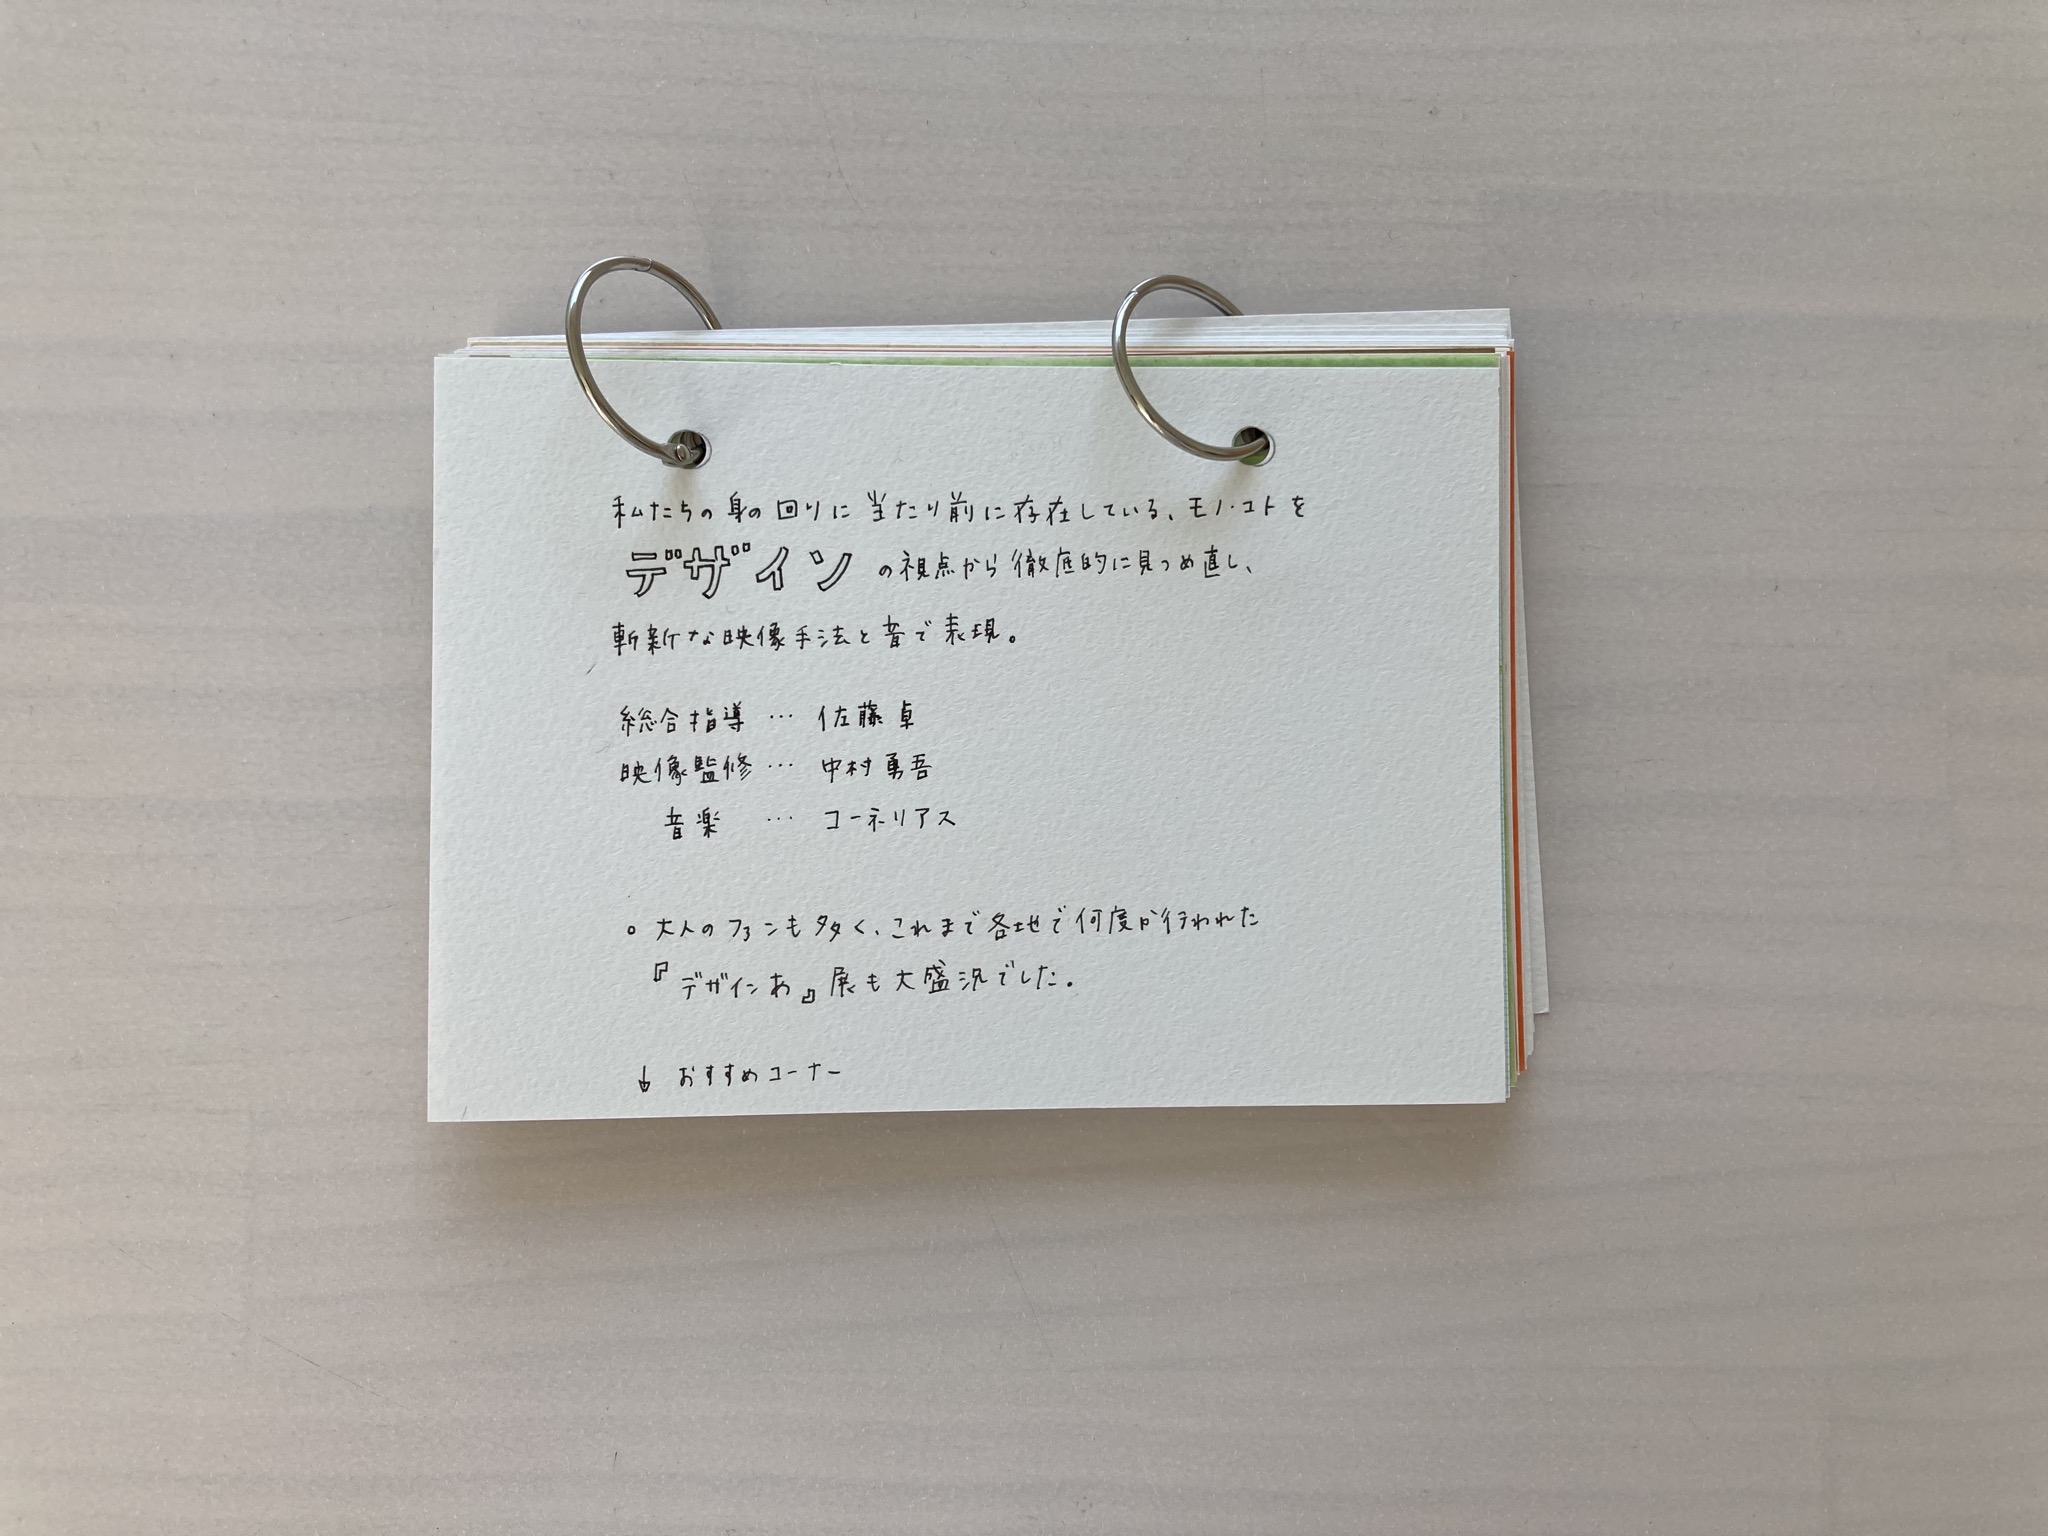 私たちの身の回りに当たり前に存在している、モノ・コトを
デザインの視点から徹底的に見つめ直し、
斬新な映像手法と音で表現。
総合指導 … 佐藤卓
映像監修 … 中村勇吾
音楽 … コーネリアス
○ 大人のファンも多く、これまで各地で何度か行われた
『デザインあ』展も大盛況でした。
↓ おすすめコーナー